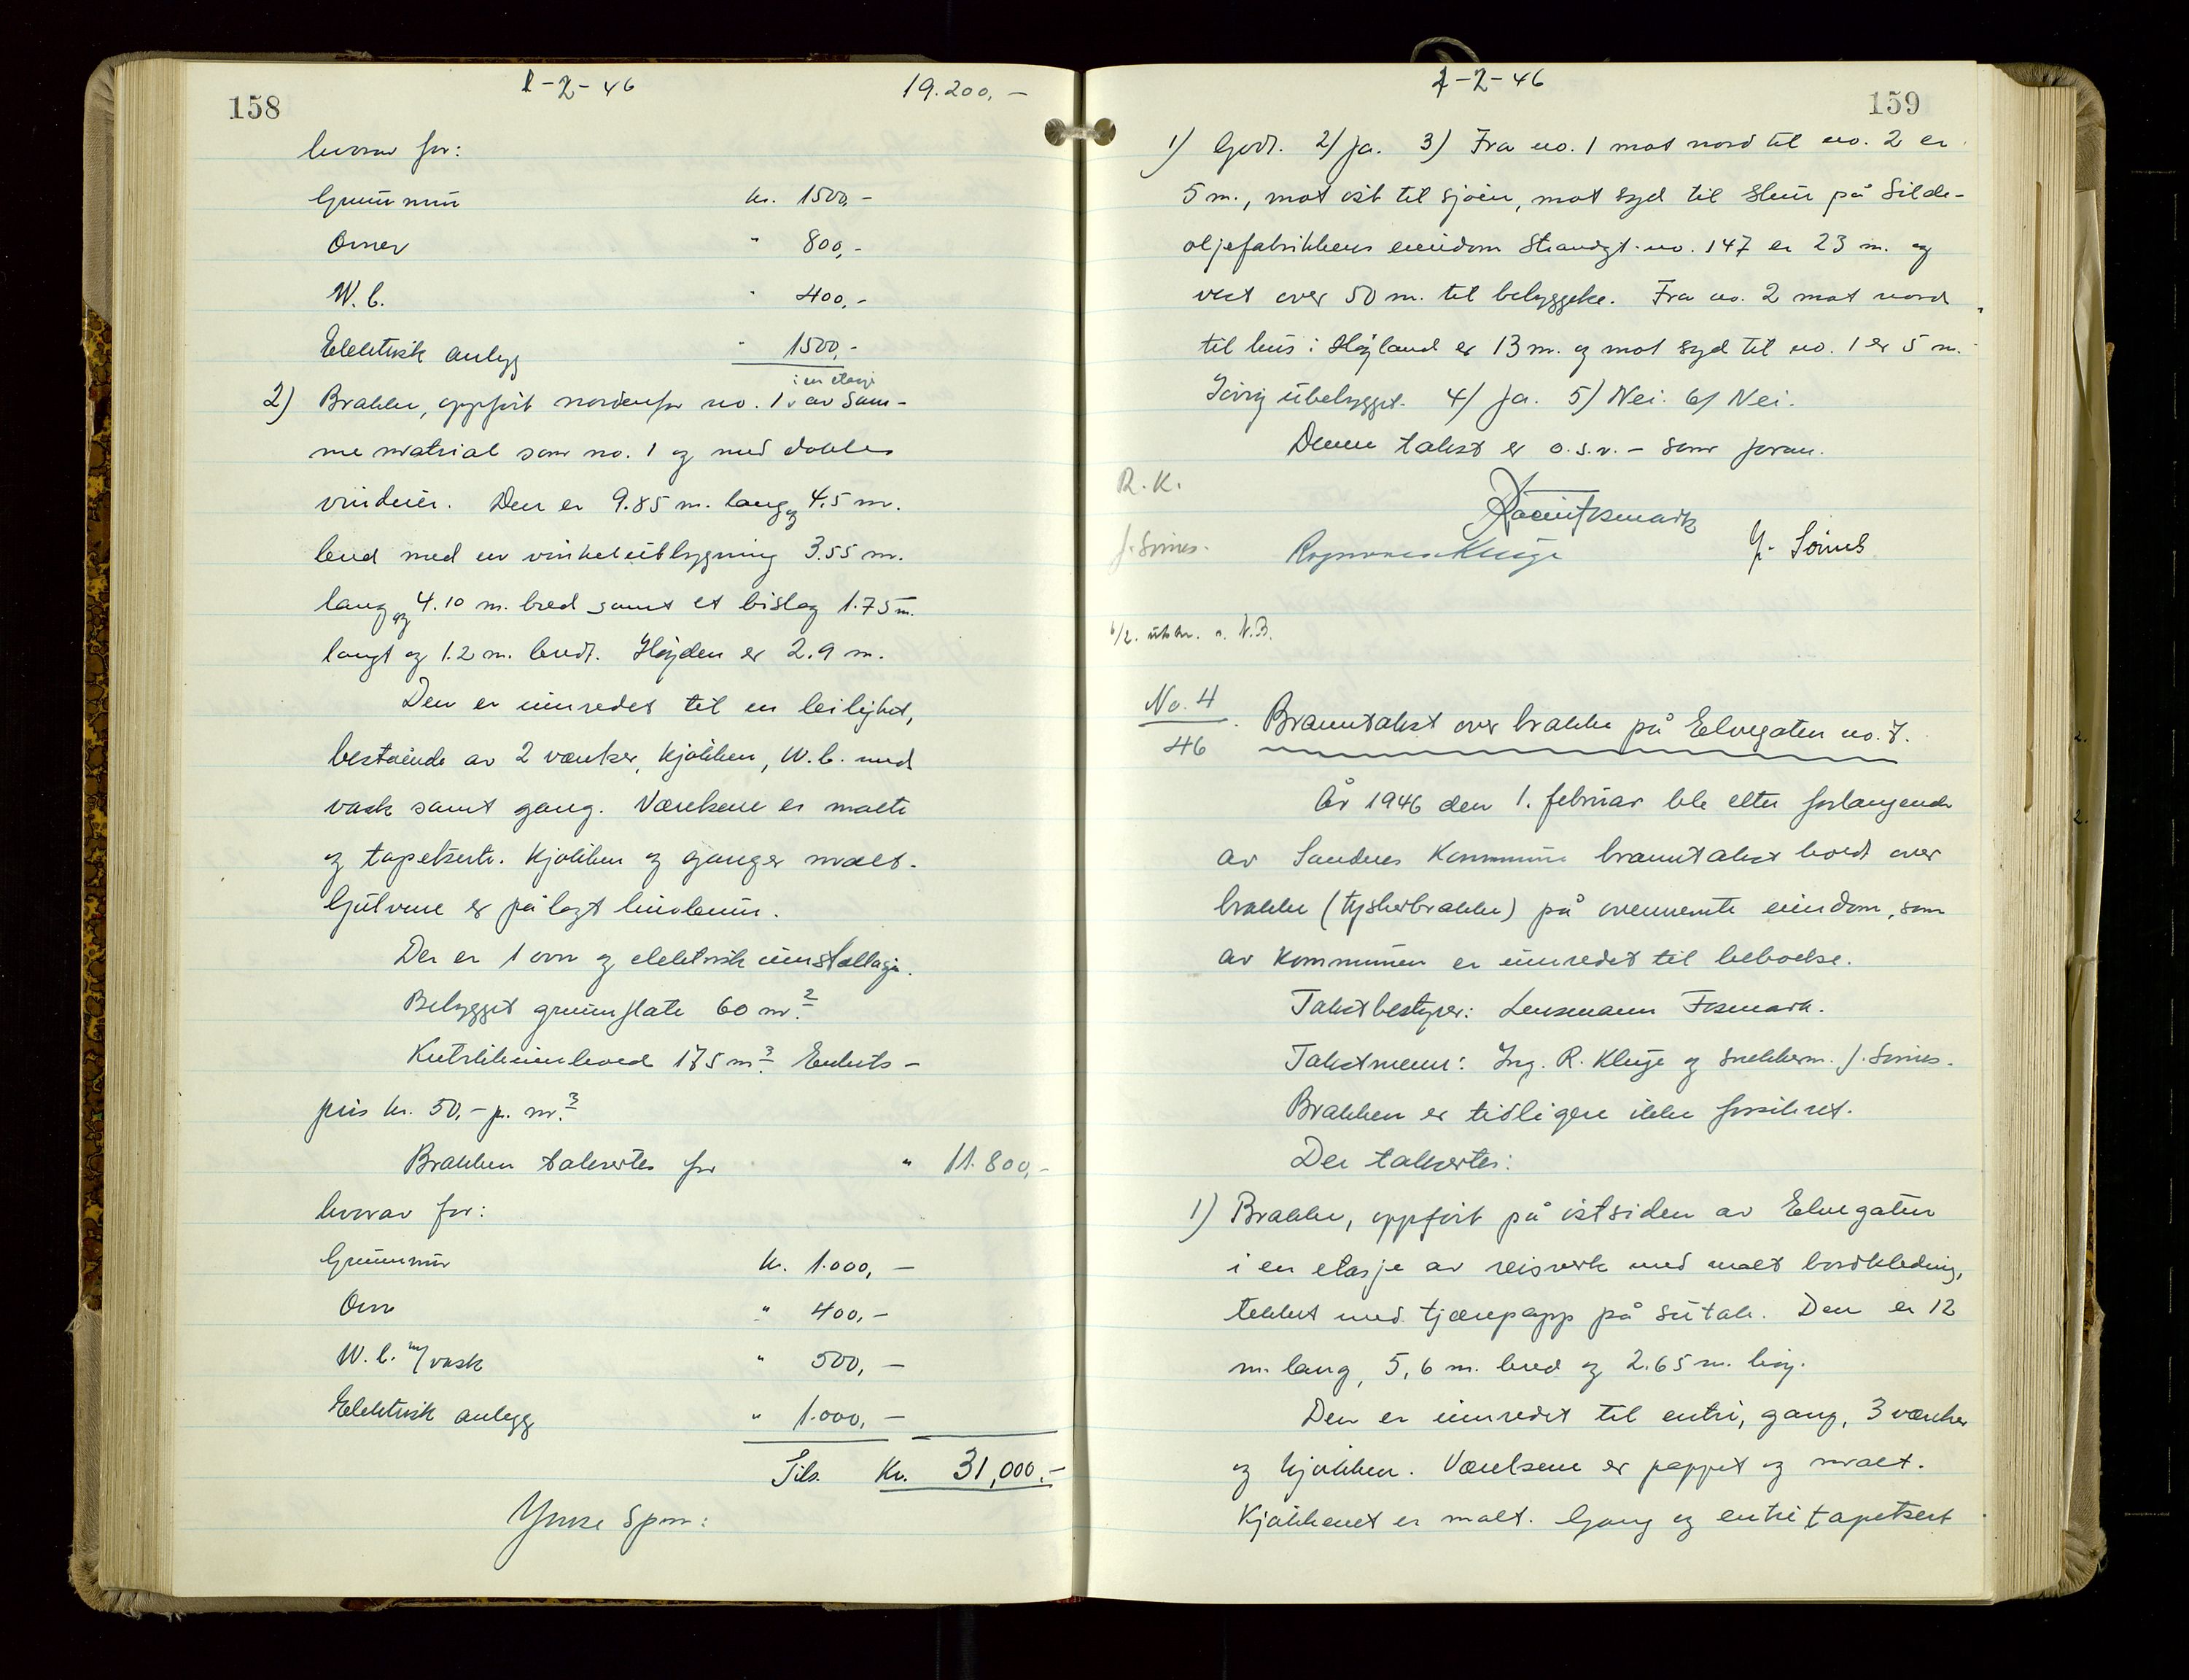 158
1-2-46
19.200,-
hvorav for:
Grunnmur kr. 1500,-
Ovner " 800,-
W.C. " 400,-
Elektrisk anlegg " 1500,-
i en etasje
2) Brakke, oppført nordenfor no. 1 v av sam-
me matrial som no. 1 og med doble
vinduer. Den er 9.85 m. lang og 4.5 m.
bred med en vinkelutbygning 3.55 m.
lang og 4.10 m. bred samt et bislag 1.75 m.
langt og 1.2 m. bredt. Højden er 2.9 m.
Den er innredet til en leilighet,
bestående av 2 værelser, kjøkken, W.C. med
vask samt gang. Værelsene er malte
og tapetserte. Kjøkken og ganger malt.
Gulvene er pålagt linoleum.
Der er 1 ovn og elektrisk innstallasje.
Bebygget grunnflate 60 m.2
Kubikkinnhold 175 m.3 Enhets-
pris kr. 50,- p. m.3
Brakken takseres for " 11.800,-
hvorav for:
Grunnmur kr. 1.000,-
Ovn " 400,-
W.C. m/vask " 500,-
Elektrisk anlegg " 1.000,-
Tils. Kr. 31,000.-
Ymse spm:
159
1-2-46
1) Godt. 2) Ja. 3) Fra no. 1 mot nord til no. 2 er
5 m., mot øst til sjøen, mot syd til skur på Silde-
oljefabrikkens eiendom Strandgt. no. 147 er 23 m. og
vest over 50 m. til bebyggelse. Fra no. 2 mot nord
til hus i Højland er 13 m. og mot syd til no. 1 er 5 m.
Forøvrig ubebygget. 4) Ja. 5) Nei. 6) Nei.
Denne takst er o.s.v. - som foran.
R.K.
J. Sømes.
Fosmark
Ragnvald Kluge J. Sømes
6/2. utskr. s. N.B.
No. 4
46
Branntakst over brakke på Elvegaten no. 7.
År 1946 den 1. februar ble etter forlangende
av Sandnes Kommune branntakst holdt over
brakke (tyskerbrakke) på ovennevnte eiendom, som
av kommunen er innredet til beboelse.
Takstbestyrer: Lensmann Fosmark.
Takstmenn: Ing. R. Kluge og snekkerm. J. Sømes.
Brakken er tidligere ikke forsikret.
Der takseres:
1) Brakke, oppført på østsiden av Elvegaten
i en etasje av reisverk med malt bordkledning,
tekket med tjærepapp på sutak. Den er 12
m. lang, 5,6 m. bred og 2.65 m. høy.
Den er innredet til entré, gang, 3 værelser
og kjøkken. Værelsene er pappet og malt.
Kjøkkenet er malt. Gang og entré tapetsert